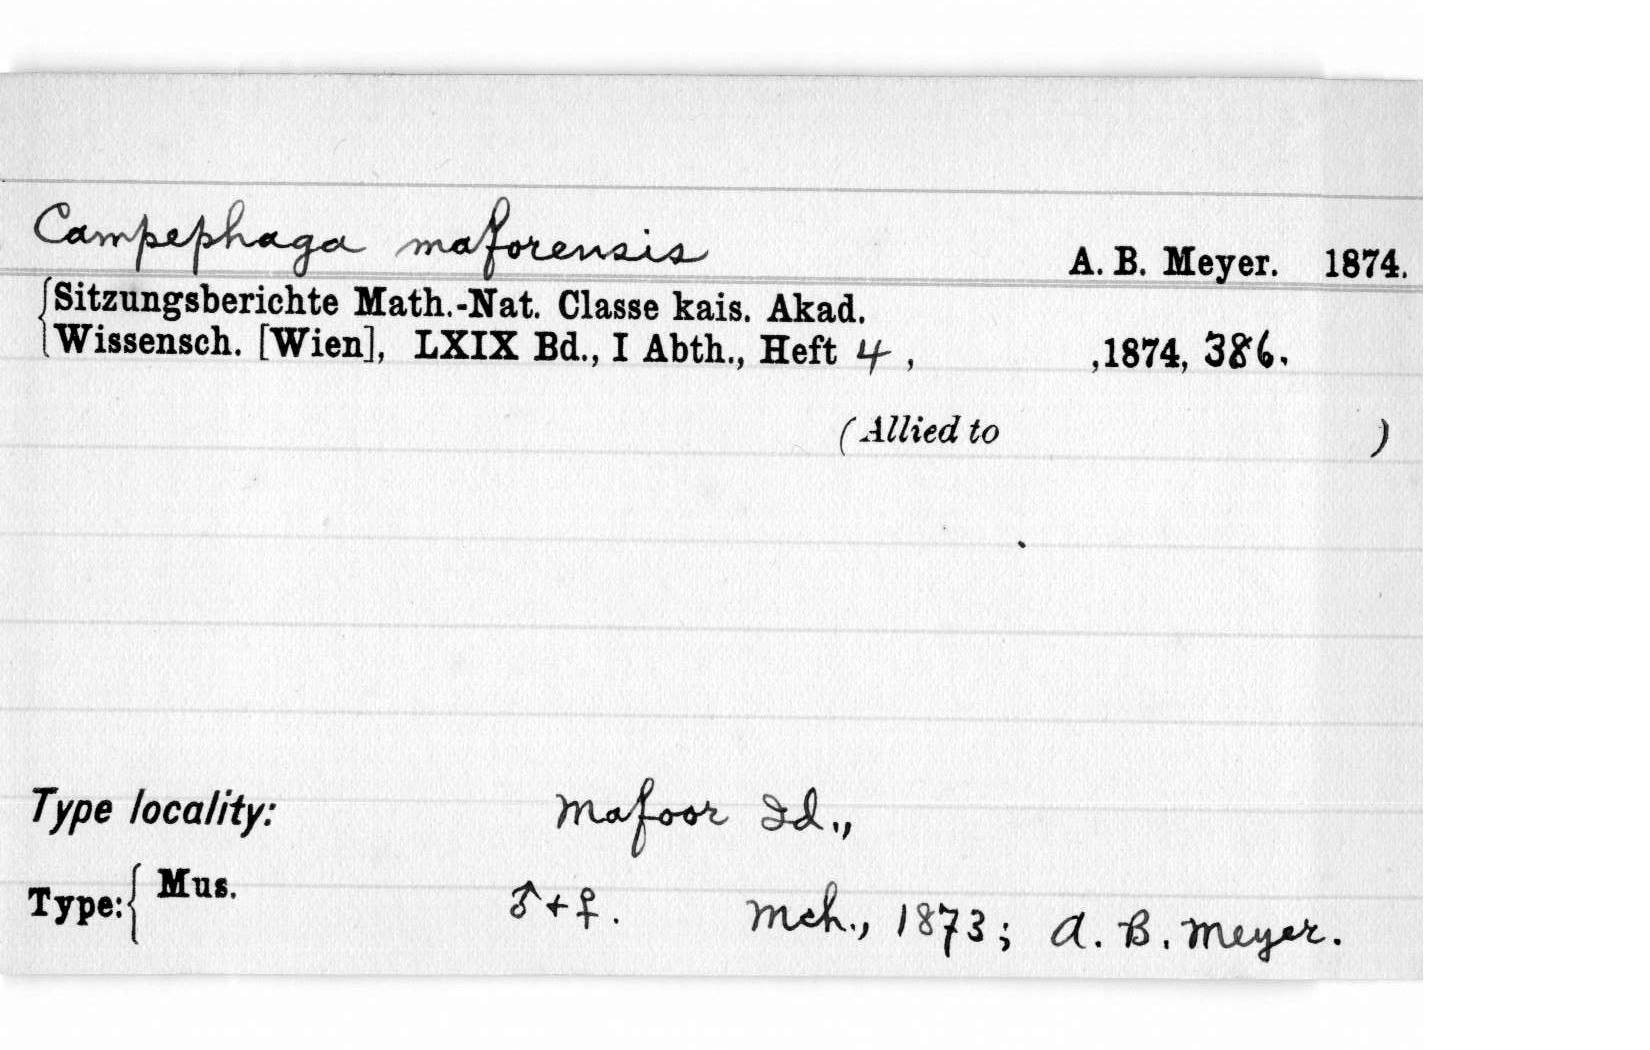 Campephaga maforensis A. B. Meyer. 1874.
Sitzungsberichte Math.-Nat. Classe kais. Akad.
Wissensch. [Wien], LXIX Bd., I Abth., Heft 4, ,1874, 386.
(Allied to )
Type locality: Mafoor Id.,
Type: { Mus. ♂+♀. Mch., 1873; A. B. Meyer.